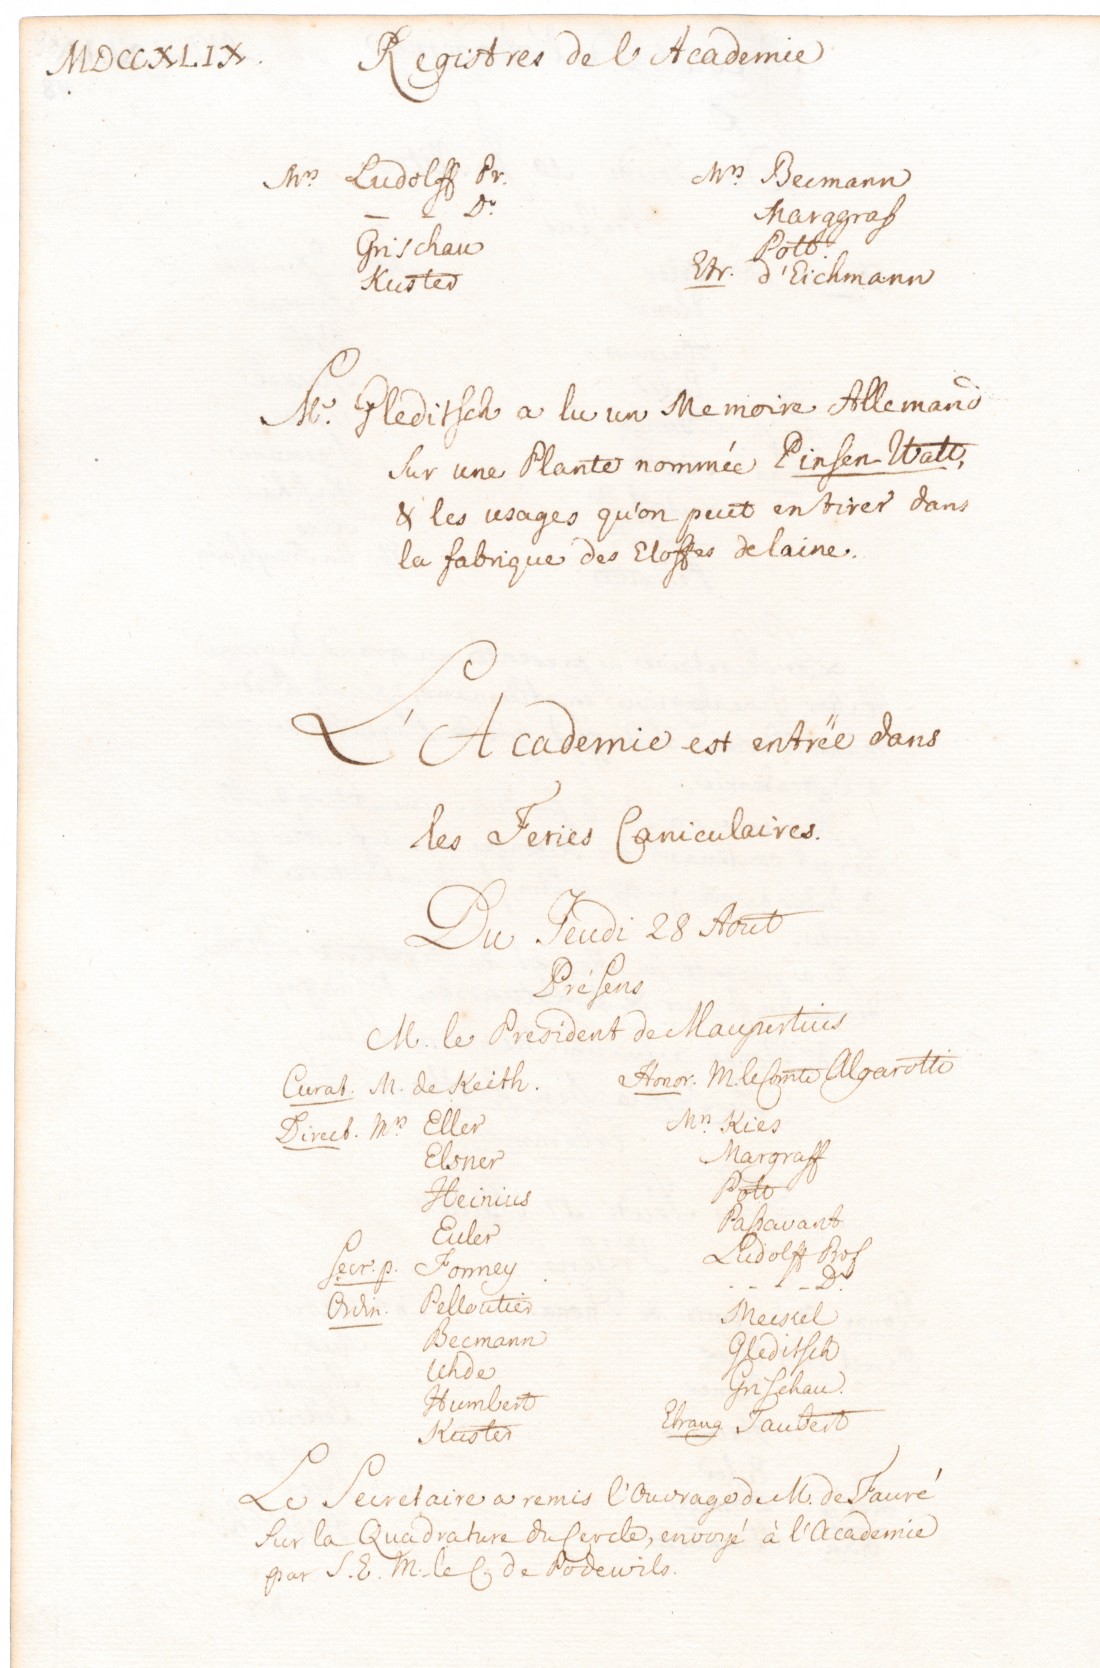 MDCCXLIX.
Registres de l'Academie
Mrs Ludolff Pr.
— - Dr.
Grischau
Kuster
Mrs Becmann
Marggraff
Pott.
Etr. d'Eichmann
Mr. Gleditsch a lu un Memoire Allemand
sur une Plante nommée Pinsen-Watt,
& les usages qu'on peut en tirer dans
la fabrique des Etoffes de laine.
L'Academie est entrée dans
les Feries Caniculaires.
Du Jeudi 28 Aout
Présens
M. le President de Maupertuis
Curat. M. de Keith.
Direct. Mrs Eller
Elsner
Heinius
Euler
Secr. p. Formey
Ordin. Pelloutier
Becmann
Uhde
Humbert
Kuster
Honor. M. le Comte Algarotti
Mrs Kies
Margraff
Pott
Passavant
Ludolff Prof
- - - - Dr.
Meckel
Gleditsch
Grischau.
Etrang Taubert
Le Secretaire a remis l'Ouvrage de M. de Fauré
sur la Quadrature du Cercle, envoyé à l'Academie
par S. E. M. le C. de Podewils.